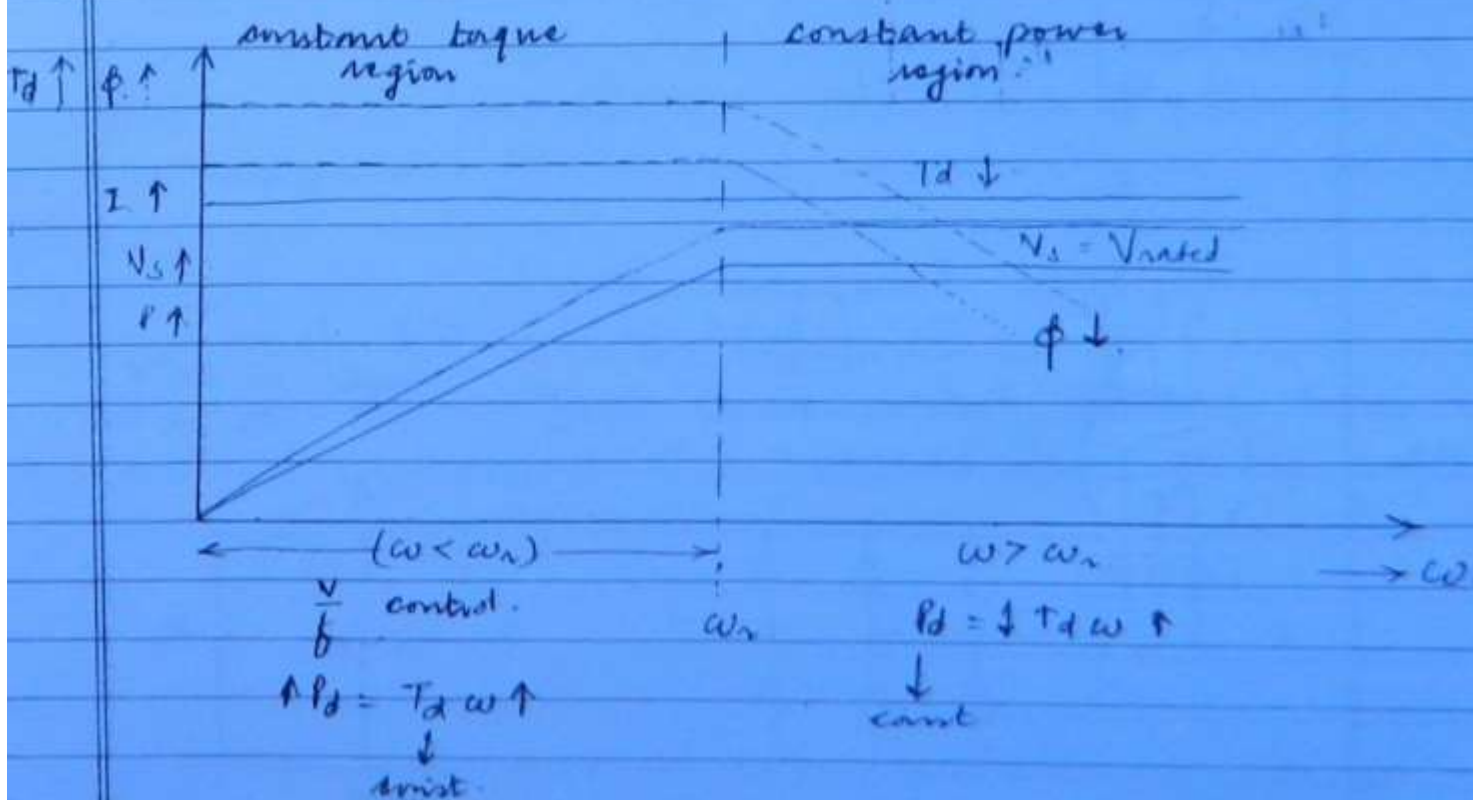 constant torque region
constant power region
Td ↑ ϕ ↑
I ↑
Td ↓
Vs ↑
Vs = Vrated
P ↑
ϕ ↓.
(ω < ωr)
ω > ωr
→ ω
V/f control.
ωr
Pd = ↓ Td ω ↑
↓
const
↑ Pd = Td ω ↑
↓
const.